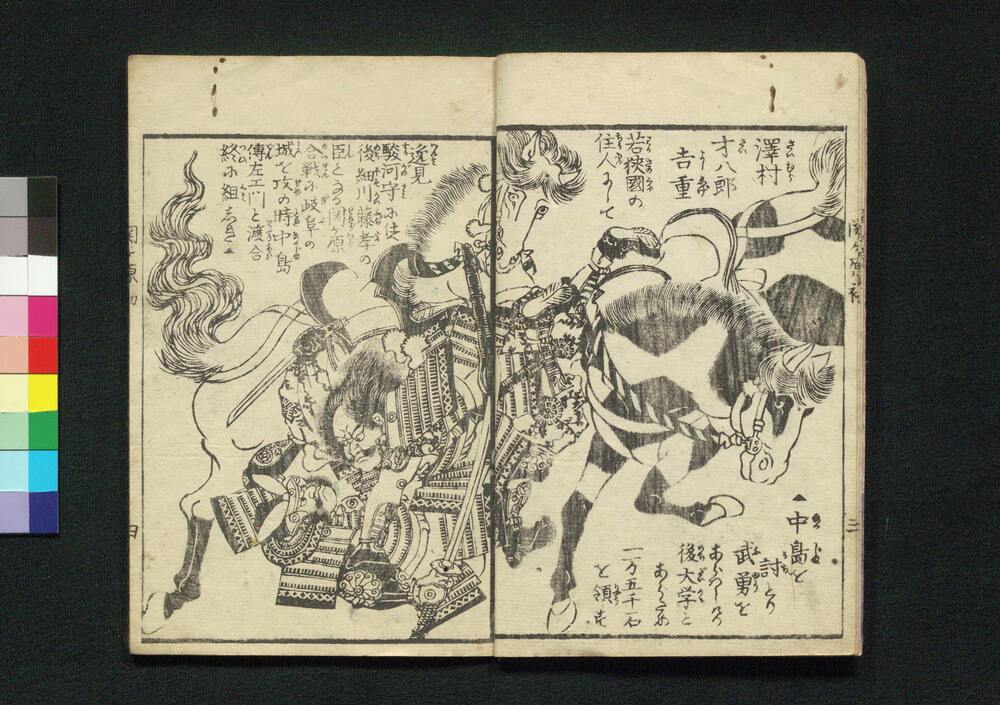 澤村
才八郎
吉重
若狹國の
住人にして
逸見
駿河守に仕
後細川藤孝の
臣となる関ヶ原
合戦に岐阜の
城を攻の時中島
傳左エ門と渡合
終に組しき▲
▲中島を
討とり
武勇を
あらはしけり
後大学と
あらため
一万五千石
を領す